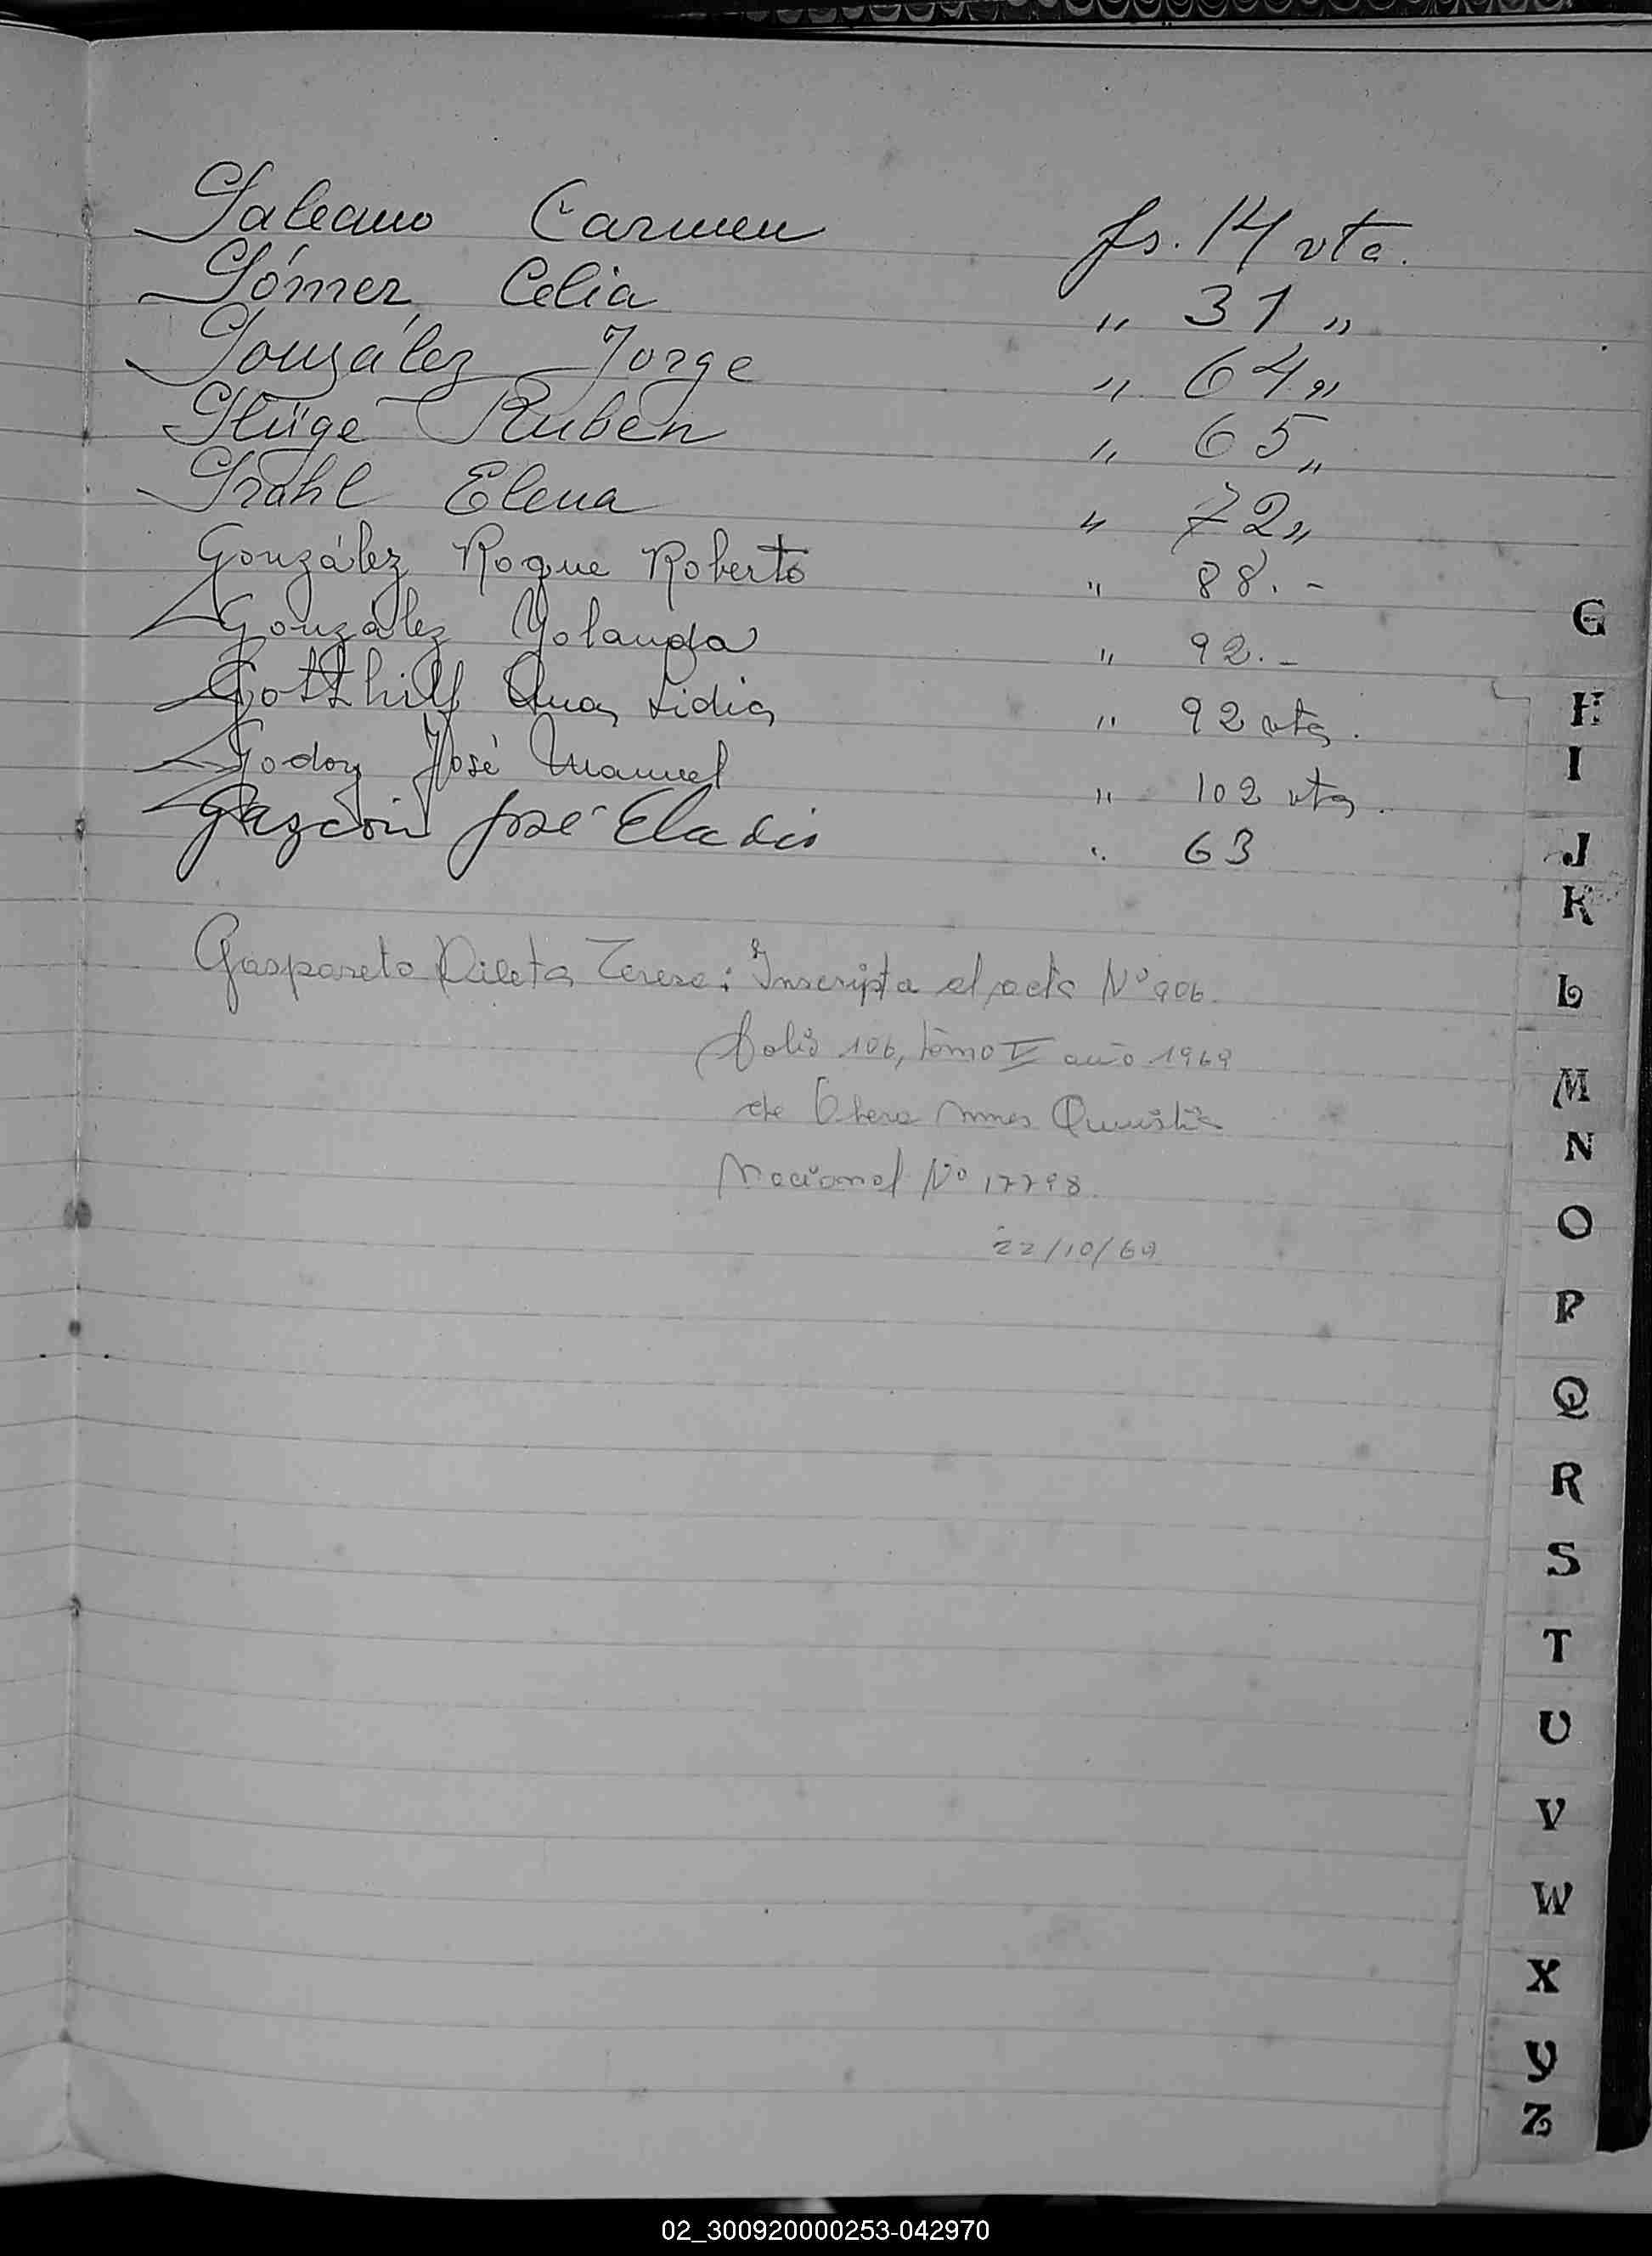 Galeano Carmen fs. 14 vta.
Gómez Celia " 31 "
González Jorge " 64 "
Glüge Rubén " 65 "
Grahl Elena " 72 "
González Roque Roberto " 88.-
González Yolanda " 92.-
Gotthilf Ana Lidia " 92 vta.
Godoy José Manuel " 102 vta.
Gazcón José Eladio " 63
Gaspareto Teresa: Inscripta al acta Nº 906
folio 106, tomo V año 1969
de Obera mnes
Nacional Nº 17798
22/10/69
G
H
I
J
K
L
M
N
O
P
Q
R
S
T
U
V
W
X
Y
Z
02_300920000253-042970